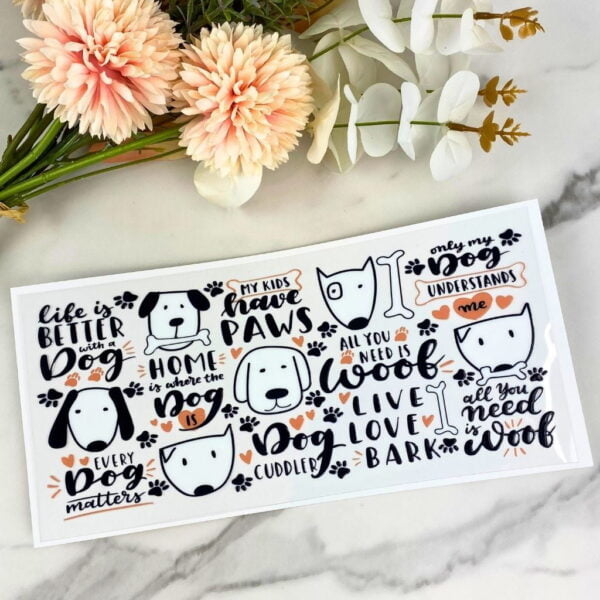 life is
BETTER
with a
Dog
EVERY
Dog
matters
HOME
is where the
Dog
IS
MY KIDS
have
PAWS
Dog
CUDDLER
ALL YOU
NEED IS
Woof
LIVE
LOVE
BARK
only my
Dog
UNDERSTANDS
me
all You
need
is
Woof